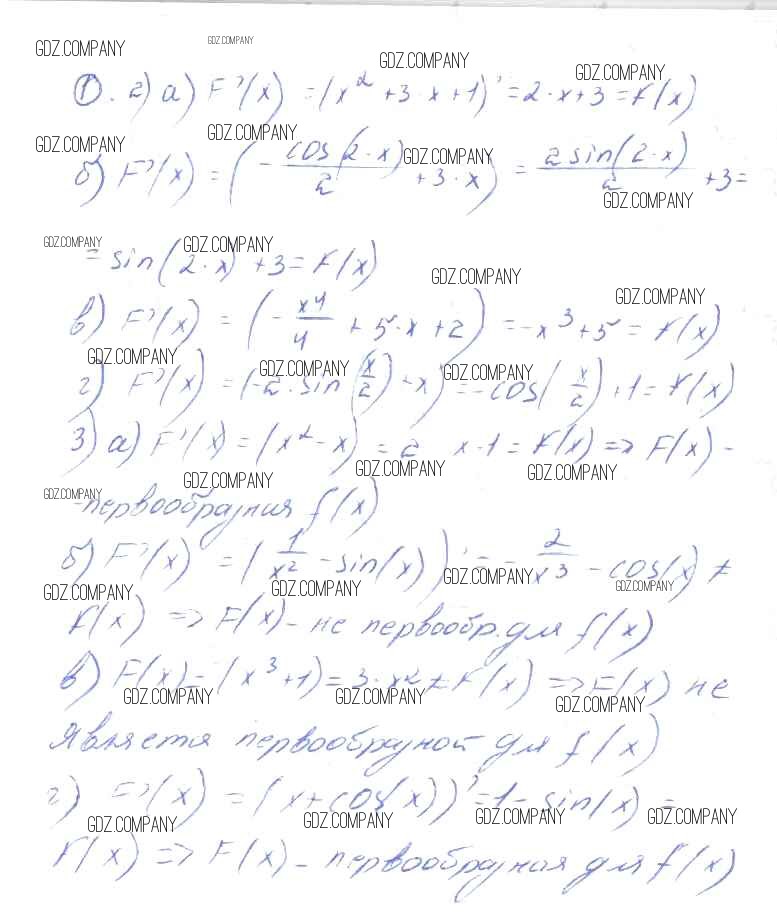 GDZ.COMPANY GDZ.COMPANY GDZ.COMPANY GDZ.COMPANY
①. 2) а) F'(x) = (x² + 3·x + 1)' = 2·x + 3 = f(x)
GDZ.COMPANY GDZ.COMPANY GDZ.COMPANY
б) F'(x) = (- cos(2·x)/2 + 3·x) = 2 sin(2·x)/2 + 3 =
GDZ.COMPANY
GDZ.COMPANY GDZ.COMPANY
= sin(2·x) + 3 = f(x)
GDZ.COMPANY GDZ.COMPANY
в) F'(x) = (- x⁴/4 + 5·x + 2) = -x³ + 5 = f(x)
GDZ.COMPANY GDZ.COMPANY GDZ.COMPANY
г) F'(x) = (-2·sin(x/2) + x)' = -cos(x/2) + 1 = f(x)
3) а) F'(x) = (x² - x) = 2 x - 1 = f(x) => F(x) -
GDZ.COMPANY GDZ.COMPANY GDZ.COMPANY GDZ.COMPANY
-первообразная f(x)
б) F'(x) = (1/x² - sin(x))' = - 2/x³ - cos(x) ≠
GDZ.COMPANY GDZ.COMPANY GDZ.COMPANY GDZ.COMPANY
f(x) => F(x) - не первообр. для f(x)
в) F(x) = (x³ + 1) = 3·x² ≠ f(x) => F(x) не
GDZ.COMPANY GDZ.COMPANY GDZ.COMPANY
является первообразной для f(x)
г) F'(x) = (x + cos(x))' = 1 - sin(x) =
GDZ.COMPANY GDZ.COMPANY GDZ.COMPANY GDZ.COMPANY
f(x) => F(x) - первообразная для f(x)